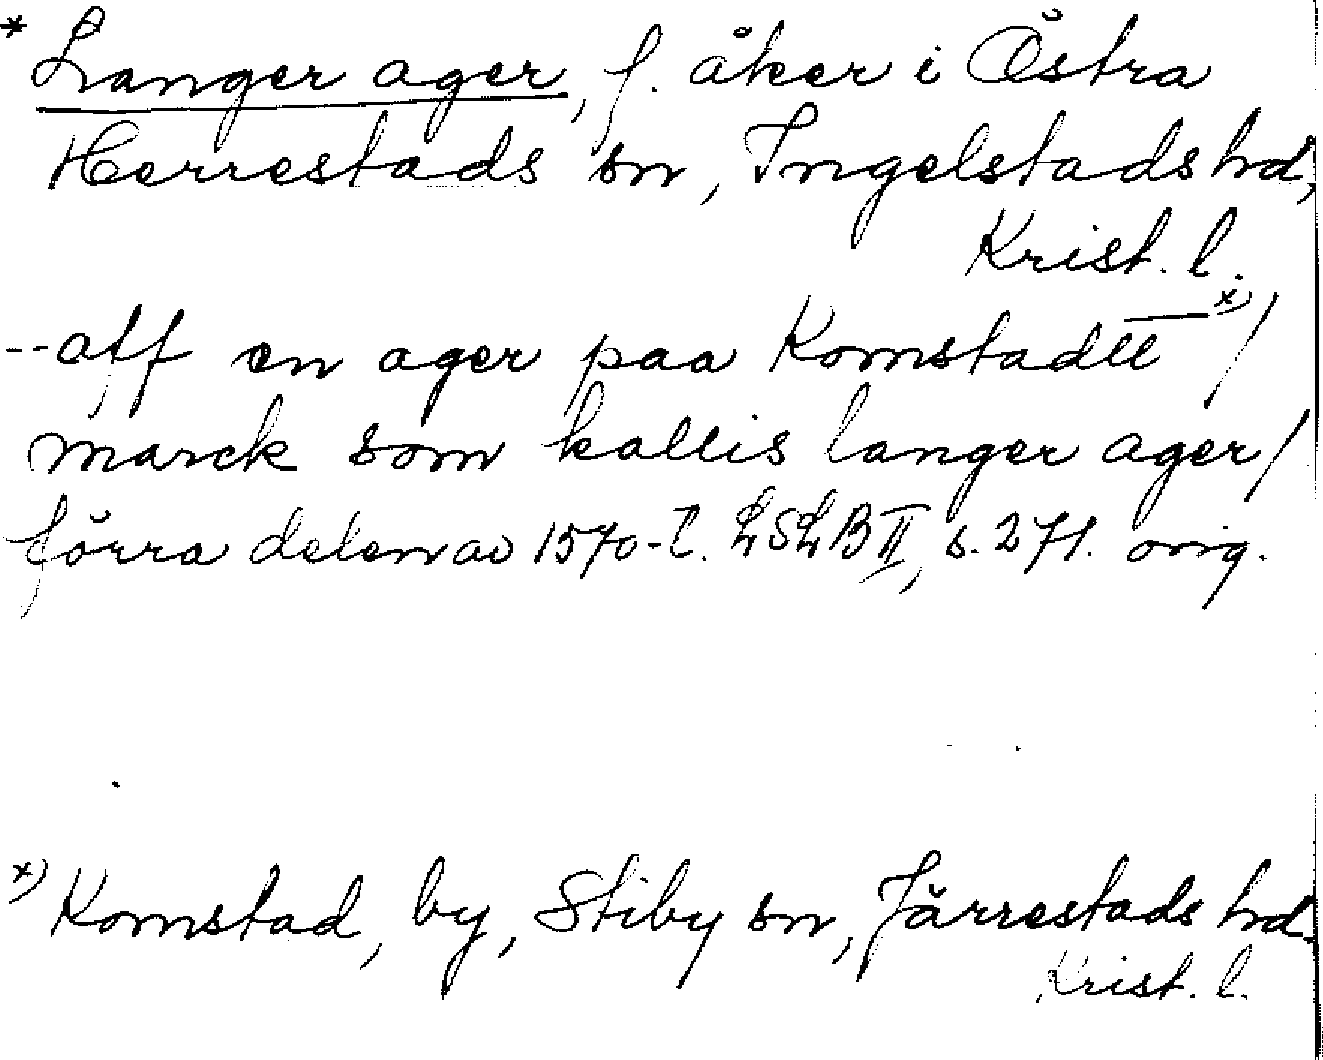 * Langer ager, f. åker i Östra
Herrestads sn, Ingelstads hd,
Krist. l.
--aff en ager paa Komstadℓℓ x)/
marck som kallis langer ager/
förra delen av 1570-t. LSLB II, s. 271. orig.
x) Komstad, by, Stiby sn, Järrestads hd.
Krist. l.